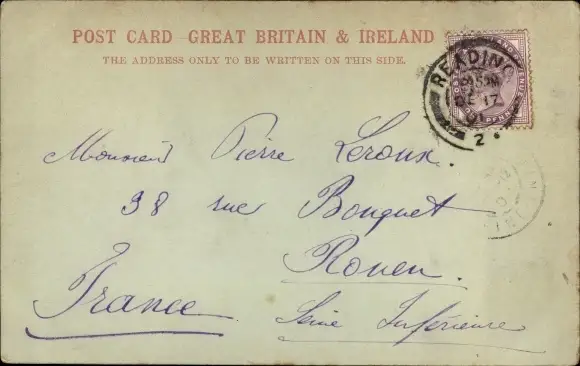 POST CARD - GREAT BRITAIN & IRELAND
THE ADDRESS ONLY TO BE WRITTEN ON THIS SIDE.
READING
DE 17
01
2
Monsieur Pierre Leroux
38 rue Bouquet
Rouen.
France Seine Inférieure